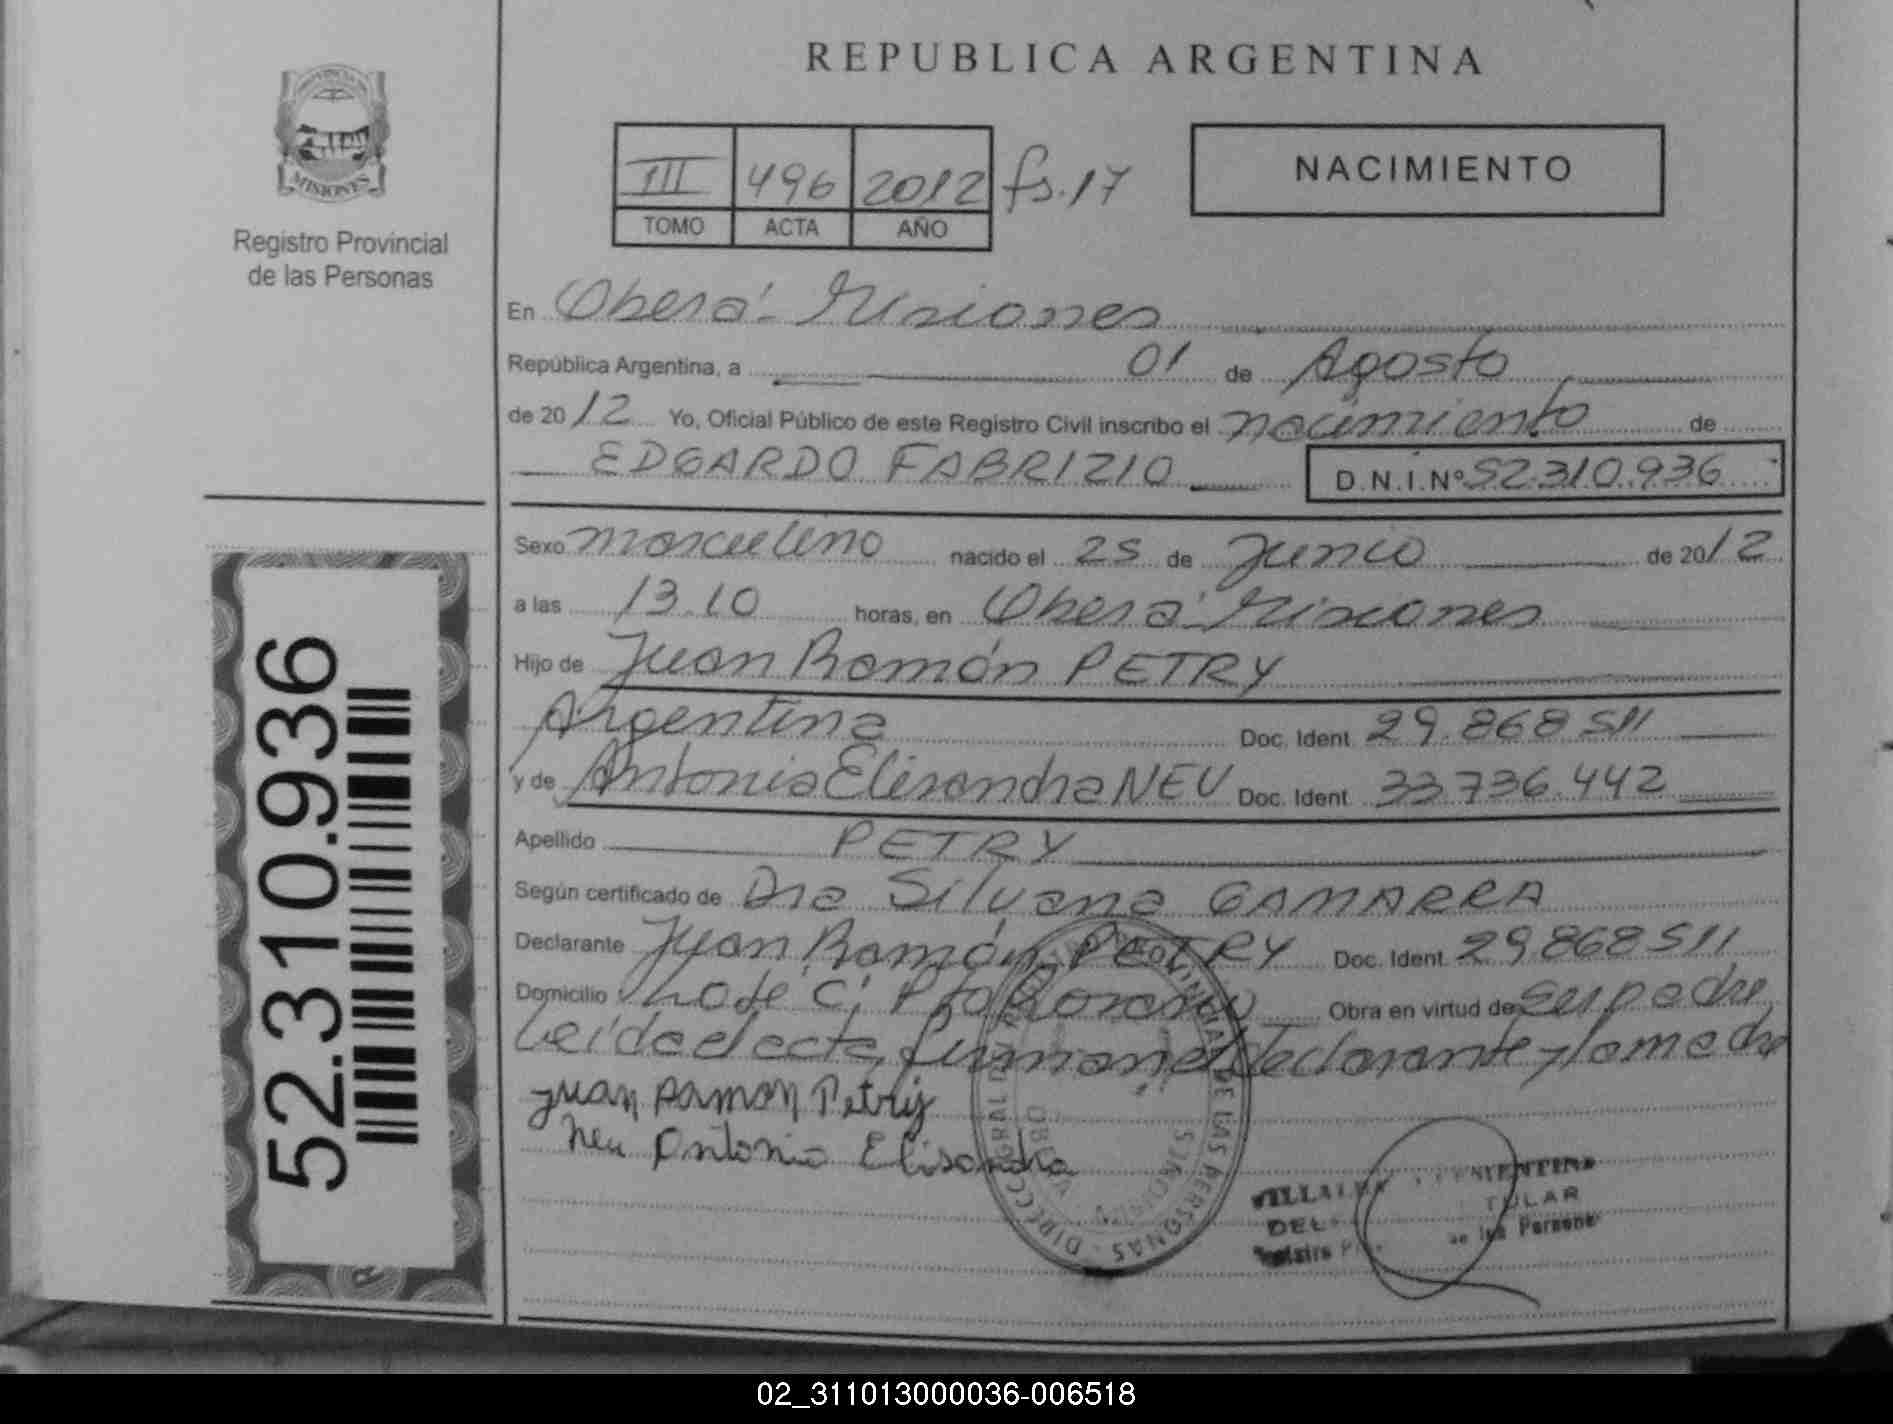 REPUBLICA ARGENTINA
PROVINCIA
MISIONES
Registro Provincial
de las Personas
III 496 2012 fs.17
TOMO ACTA AÑO
NACIMIENTO
En Oberá - Misiones
República Argentina, a 01 de Agosto
de 2012 Yo, Oficial Público de este Registro Civil inscribo el nacimiento de
EDGARDO FABRIZIO D.N.I.Nº 52.310.936
Sexo masculino nacido el 25 de Junio de 2012
a las 13.10 horas, en Oberá - Misiones
Hijo de Juan Ramón PETRY
Argentina Doc. Ident. 29.868 511
y de Antonia Elisandra NEU Doc. Ident. 33 736.442
Apellido PETRY
Según certificado de Dra Silvana GAMARRA
Declarante Juan Ramón PETRY Doc. Ident. 29868511
Domicilio Lote C; Pto Obra en virtud de su padre
Leída el acta, firman el declarante y la madre
Juan Ramon Petry
Neu Antonia Elisandra
DE LAS PERSONAS - DIRECC
OBERA
MISIONES
VILLALBA
DEL
TULAR
las Persona
52.310.936
02_311013000036-006518